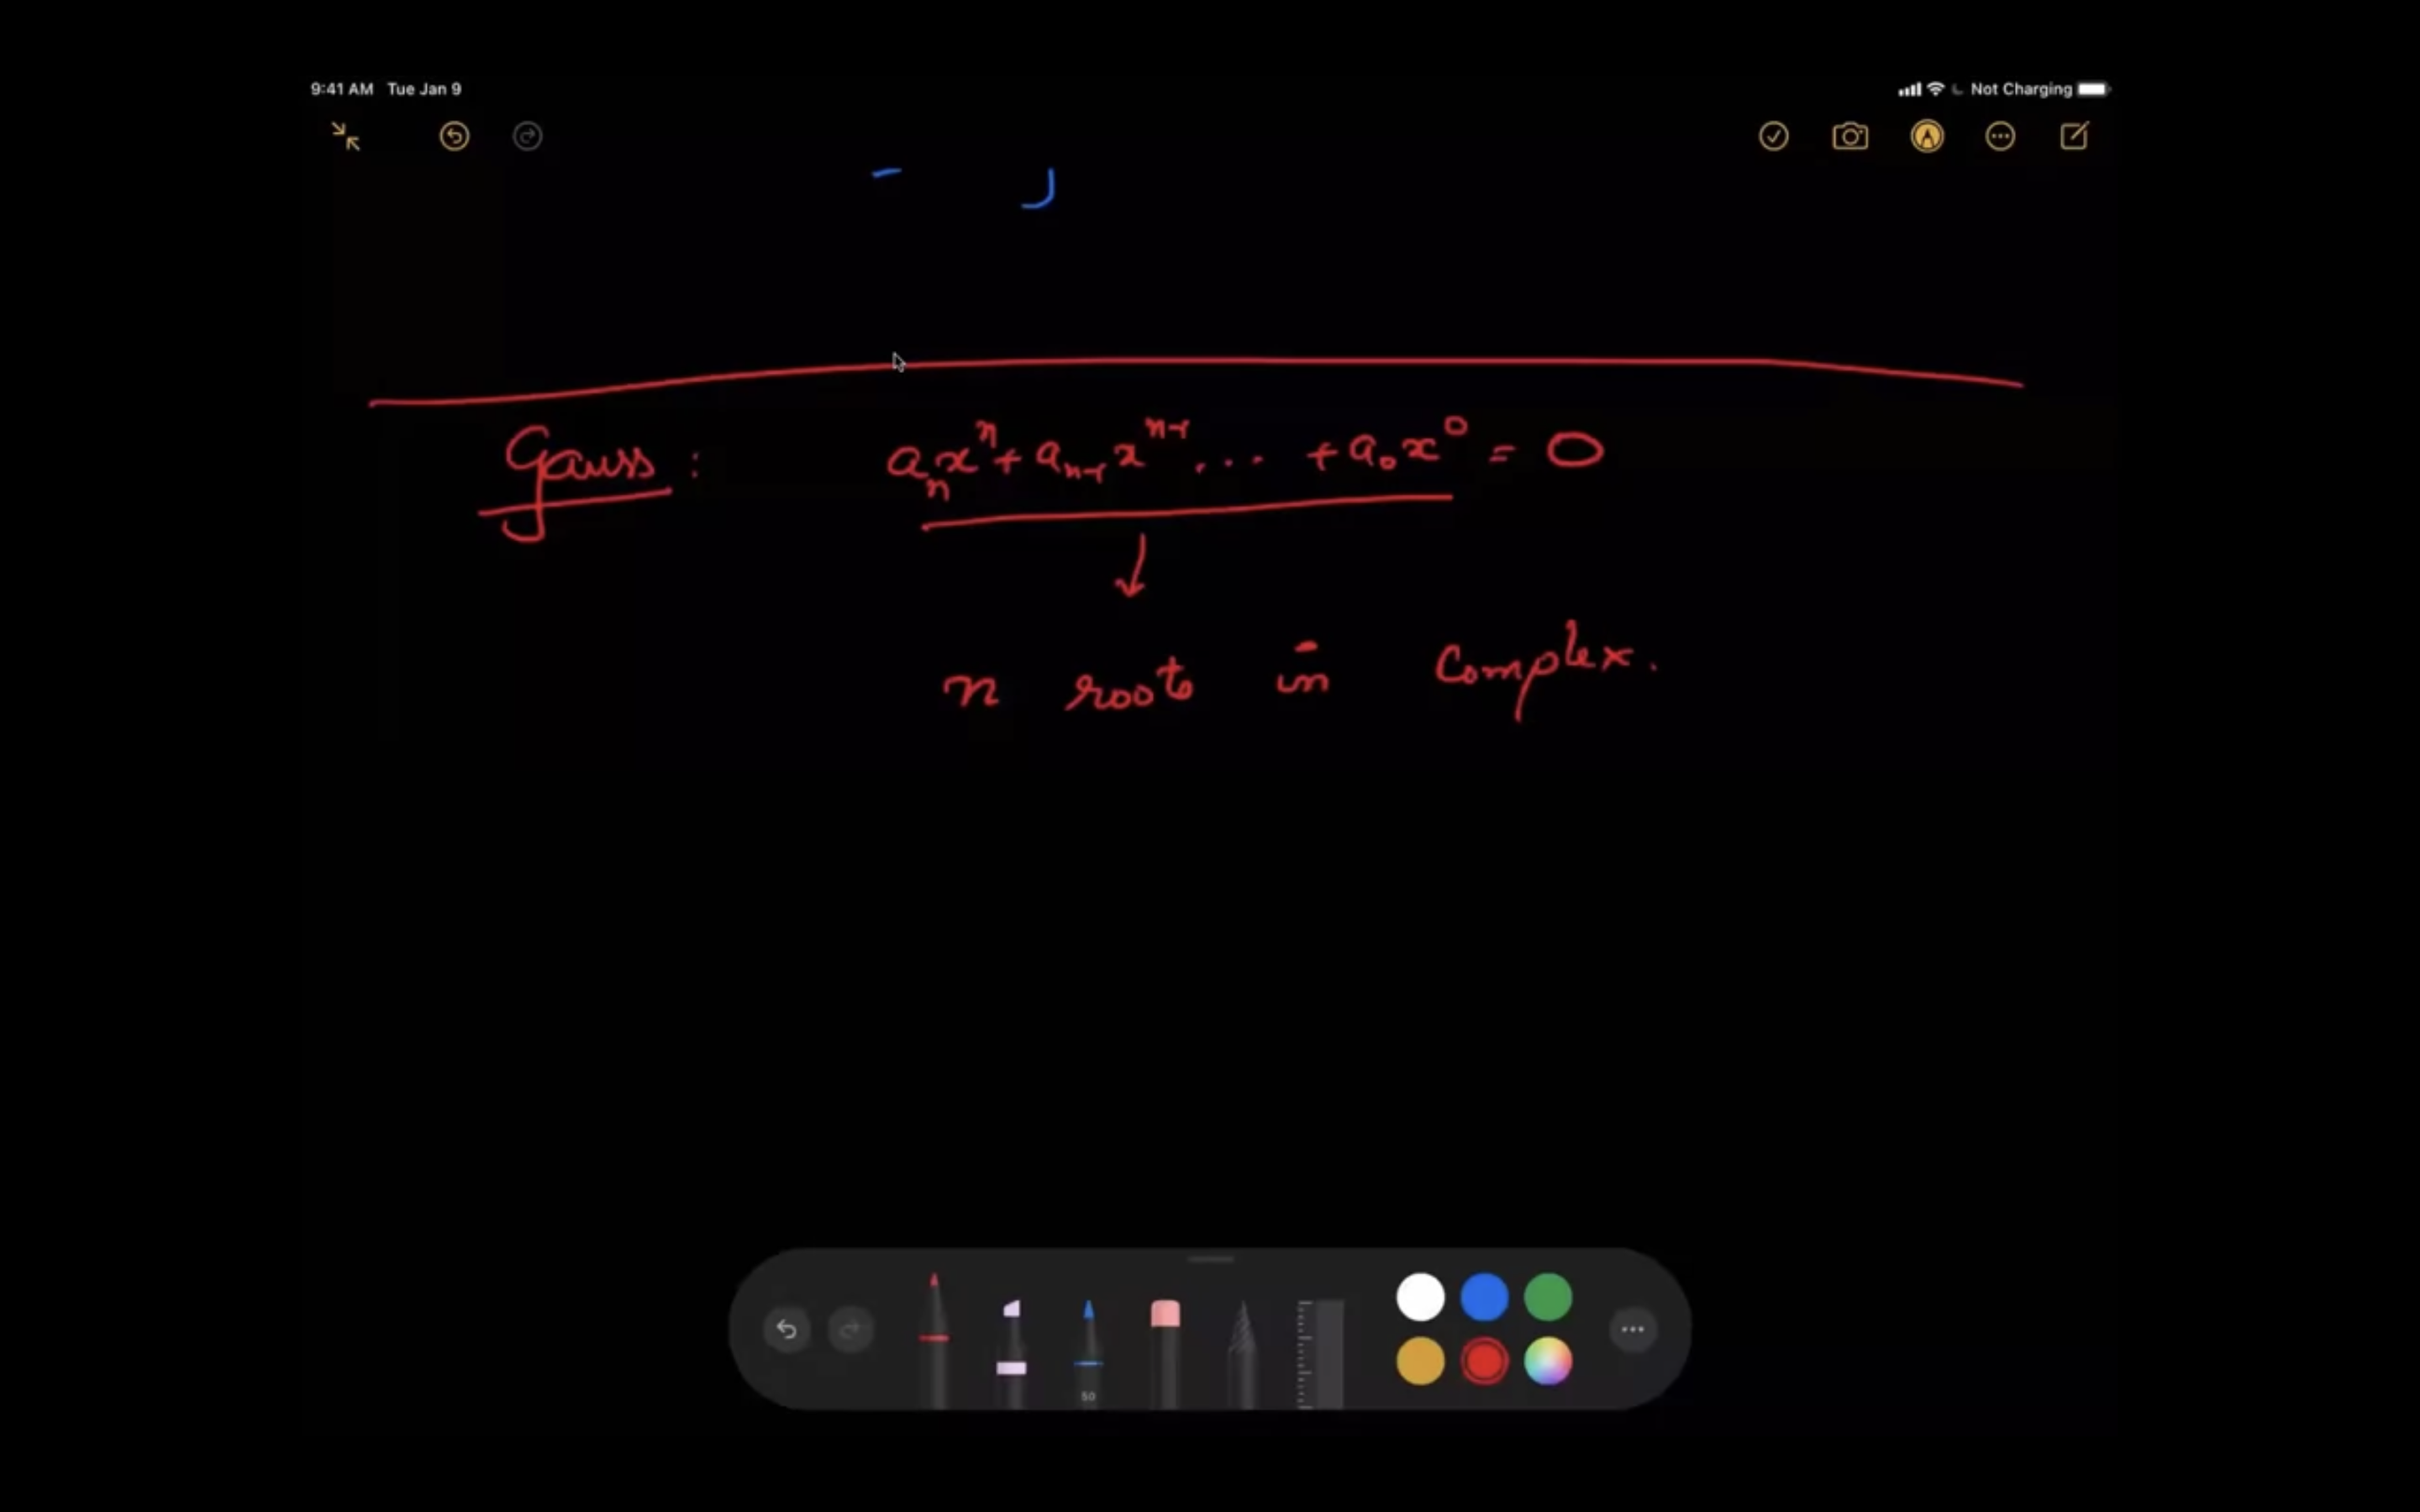 9:41 AM Tue Jan 9 Not Charging
Gauss : aₙxⁿ + aₙ₋₁xⁿ⁻¹ . ... + a₀x⁰ = 0
↓
n roots in Complex.
50